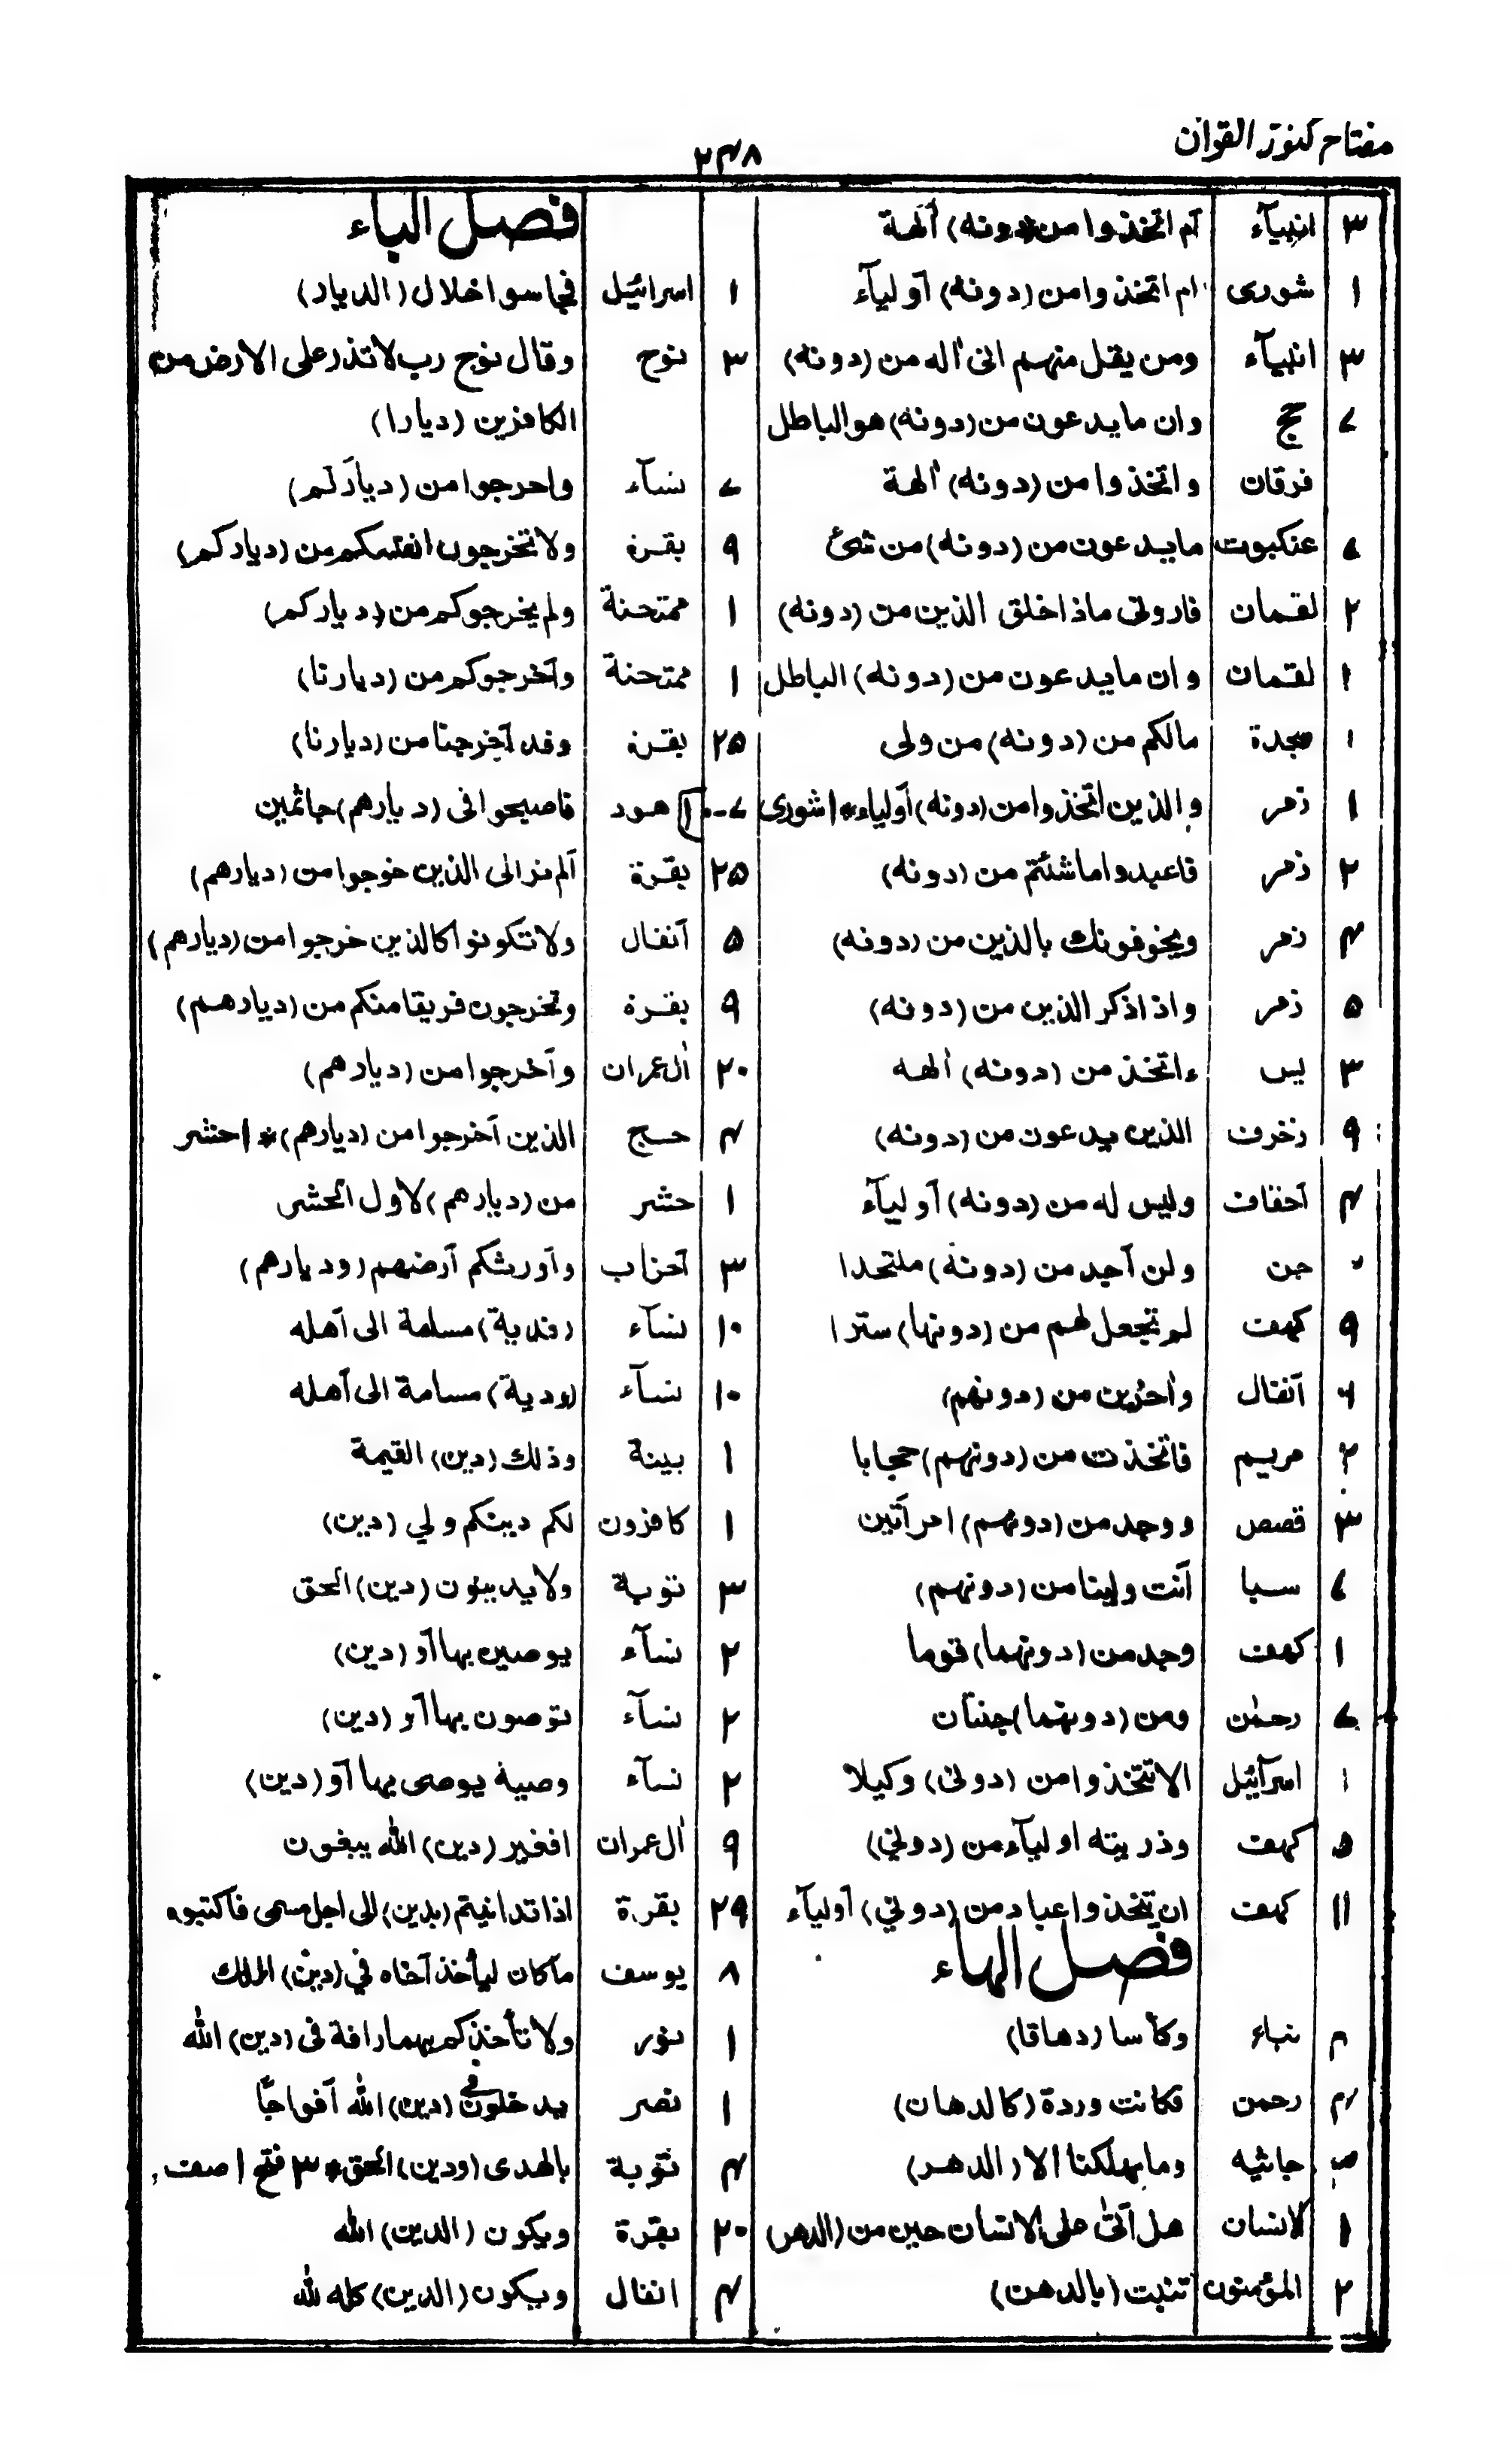 مفتاح كنوز القرآن
۲۴۸
۳ انبيآء آم اتخذوا من (دونه) ألهة
۱ شورى ام اتخذوا من (دونه) آوليآء
۳ انبيآء ومن يقل منهم انى أله من (دونه)
۷ حج وان ما يدعون من (دونه) هو الباطل
فرقان واتخذوا من (دونه) ألهة
۷ عنكبوت ما يدعون من (دونه) من شئ
۲ لقمان فارونى ماذا خلق الذين من (دونه)
۱ لقمان وان ما يدعون من (دونه) الباطل
۱ سجدة مالكم من (دونه) من ولى
۱ زمر والذين اتخذوا من (دونه) آولياء * ۱ شورى
۲ زمر فاعبدوا ما شئتم من (دونه)
۴ زمر ويخوفونك بالذين من (دونه)
۵ زمر واذا ذكر الذين من (دونه)
۳ يس ءاتخذ من (دونه) ألهه
۹ زخرف الذين يدعون من (دونه)
۴ آحقاف وليس له من (دونه) آوليآء
جن ولن آجد من (دونه) ملتحدا
۹ كهف لم نجعل لهم من (دونها) سترا
۶ آنفال وأخرين من (دونهم)
۲ مريم فاتخذت من (دونهم) حجابا
۳ قصص ووجد من (دونهم) امرآتين
۷ سبا آنت ولينا من (دونهم)
۱ كهف وجد من (دونهما) قوما
۷ رحمن ومن (دونهما) جنتان
۱ اسرآئيل الا تتخذوا من (دونى) وكيلا
۵ كهف وذريته اوليآء من (دوني)
۱۱ كهف ان يتخذوا عباد من (دوني) آوليآء
فصل الهاء
۲ نباء وكأسا (دهاقا)
۴ رحمن فكانت وردة (كالدهان)
۳ جاثيه وما يهلكنا الا (الدهر)
۱ لانسان هل آتى على الانسان حين من (الدهر)
۲ المؤمنون تنبت (بالدهن)
فصل الياء
۱ اسرائيل فجاسوا خلال (الديار)
۳ نوح وقال نوح رب لا تذر على الارض من
الكافرين (ديارا)
۷ نسآء واخرجوا من (ديارکم)
۹ بقرة ولا تخرجون انفسكم من (دياركم)
۱ ممتحنة ولم يخرجوكم من (دياركم)
۱ ممتحنة وآخرجوكم من (ديارنا)
۲۵ بقرة وقد آخرجنا من (ديارنا)
۷-۱۰ هود فاصبحوا فى (ديارهم) جاثمين
۲۵ بقرة آلم تر الى الذين خرجوا من (ديارهم)
۵ آنفال ولا تكونوا كالذين خرجوا من (ديارهم)
۹ بقرة وتخرجون فريقا منكم من (ديارهم)
۲۰ أل عمران وآخرجوا من (ديارهم)
۴ حج الذين آخرجوا من (ديارهم) * ۱ حشر
۱ حشر من (ديارهم) لاول الحشر
۳ آحزاب وآورثكم آرضهم (وديارهم)
۱۰ نسآء (فدية) مسلمة الى آهله
۱۰ نسآء (ودية) مسلمة الى آهله
۱ بينة وذلك (دين) القيمة
۱ كافرون لكم دينكم ولي (دين)
۳ توبة ولا يدينون (دين) الحق
۲ نسآء يوصين بها آو (دين)
۲ نسآء توصون بها آو (دين)
۲ نسآء وصية يوصى بها آو (دين)
۹ أل عمران افغير (دين) الله يبغون
۲۹ بقرة اذا تداينتم (بدين) الى اجل مسمى فاكتبوه
۸ يوسف ما كان ليأخذ آخاه في (دين) الملك
۱ نور ولا تأخذكم بهما رافة فى (دين) الله
۱ نصر يدخلون في (دين) الله آفواجًا
۴ توبة بالهدى (ودين) الحق * ۳ فتح ۱ صف
۲۰ بقرة ويكون (الدين) الله
۴ انفال ويكون (الدين) كله لله